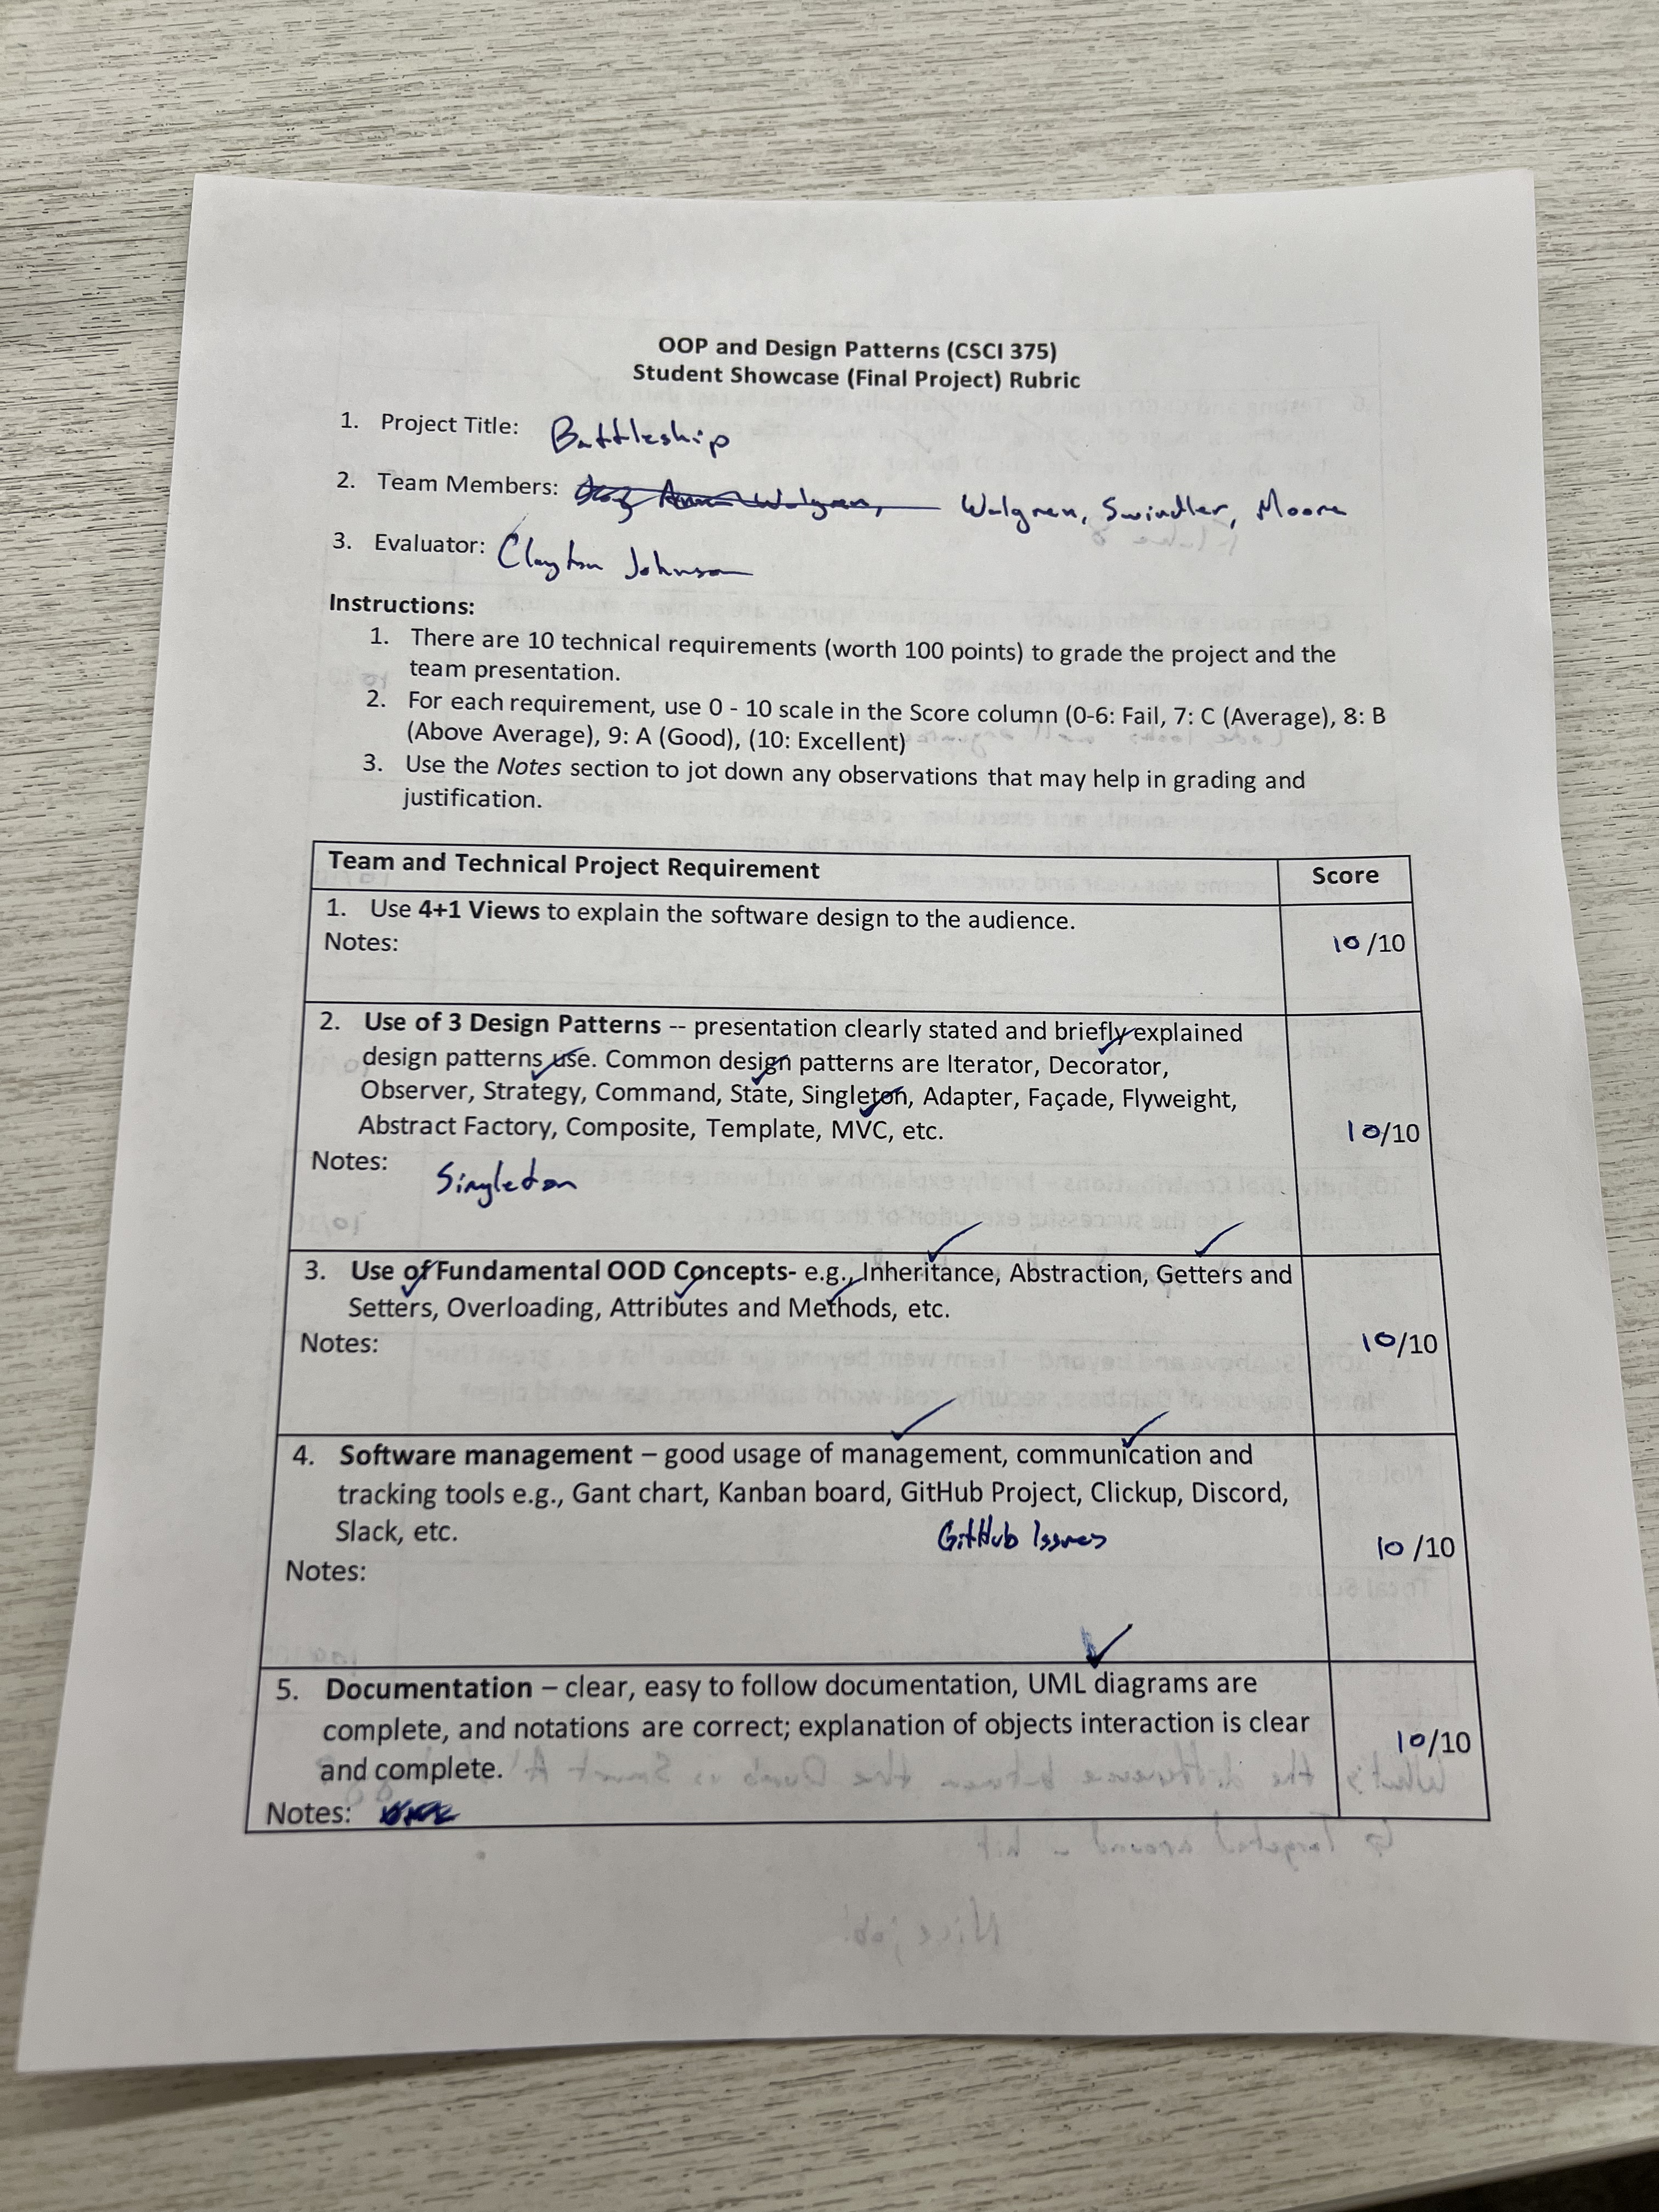 OOP and Design Patterns (CSCI 375)
Student Showcase (Final Project) Rubric
1. Project Title: Battleship
2. Team Members: Walgren, Swindler, Moore
3. Evaluator: Clayton Johnson
Instructions:
1. There are 10 technical requirements (worth 100 points) to grade the project and the
team presentation.
2. For each requirement, use 0 - 10 scale in the Score column (0-6: Fail, 7: C (Average), 8: B
(Above Average), 9: A (Good), (10: Excellent)
3. Use the Notes section to jot down any observations that may help in grading and
justification.
Team and Technical Project Requirement Score
1. Use 4+1 Views to explain the software design to the audience.
Notes:
10/10
2. Use of 3 Design Patterns -- presentation clearly stated and briefly explained
design patterns use. Common design patterns are Iterator, Decorator,
Observer, Strategy, Command, State, Singleton, Adapter, Façade, Flyweight,
Abstract Factory, Composite, Template, MVC, etc.
10/10
Notes: Singleton
3. Use of Fundamental OOD Concepts- e.g., Inheritance, Abstraction, Getters and
Setters, Overloading, Attributes and Methods, etc.
Notes:
10/10
4. Software management – good usage of management, communication and
tracking tools e.g., Gant chart, Kanban board, GitHub Project, Clickup, Discord,
Slack, etc.
GitHub Issues
10/10
Notes:
5. Documentation – clear, easy to follow documentation, UML diagrams are
complete, and notations are correct; explanation of objects interaction is clear
and complete.
10/10
Notes: